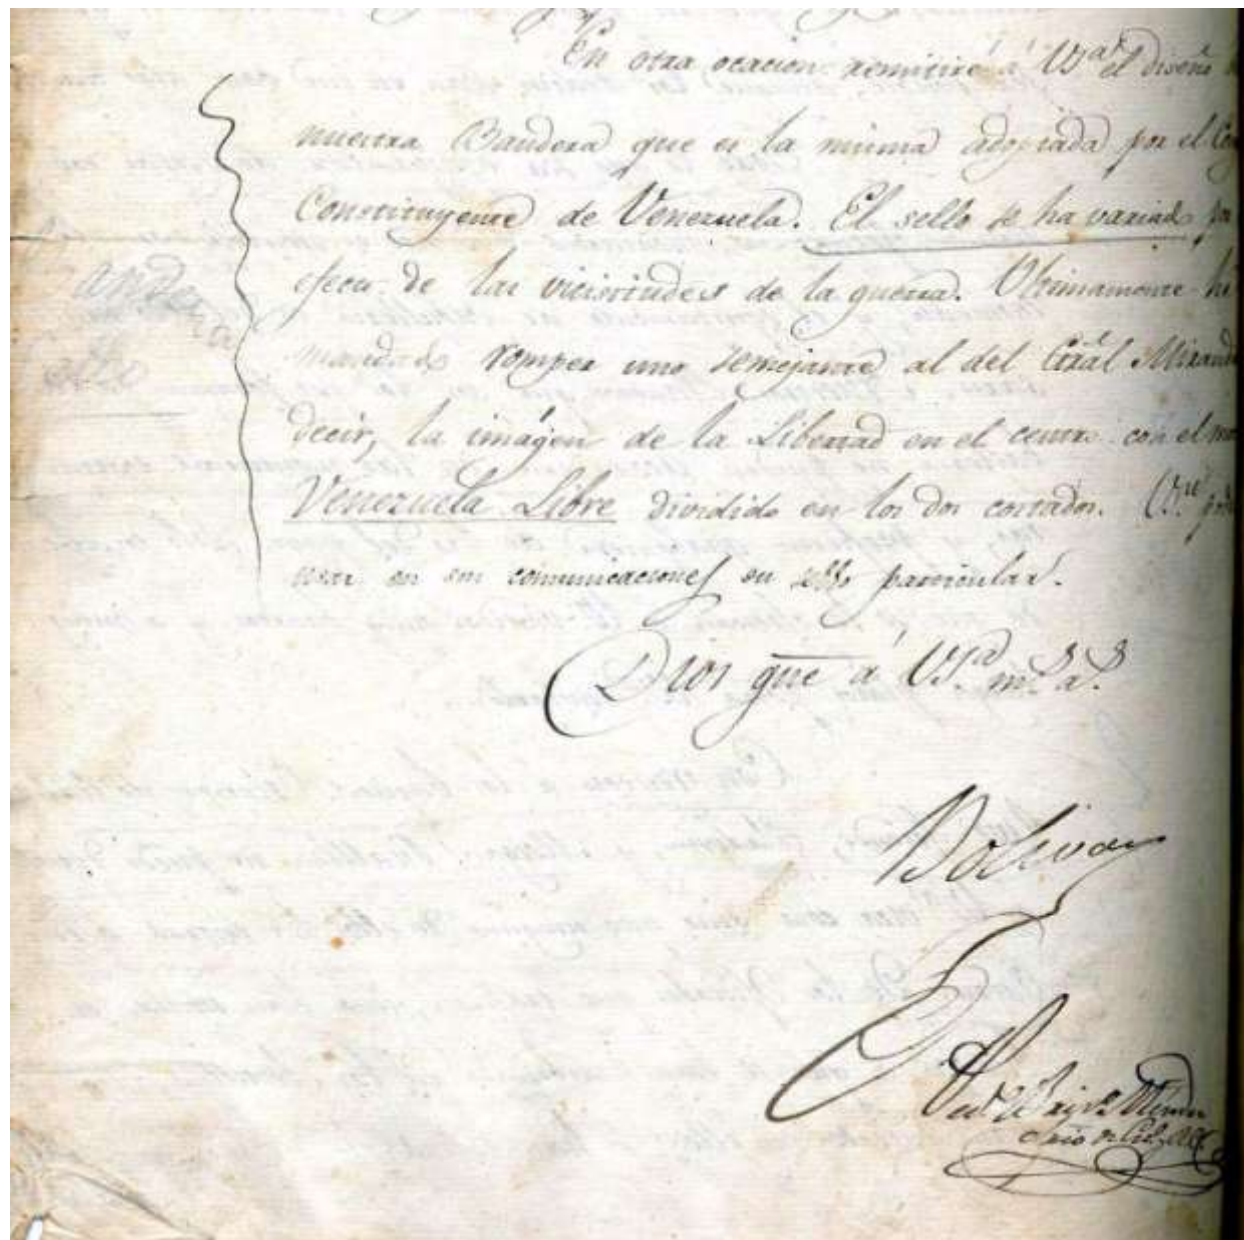 En otra ocacion remitiré á Vsª el diseñ
nuestra Bandera que es la misma adoptada por el Con
Constituyente de Venezuela. El sello se ha variado por
efecto de las vicisitudes de la guerra. Ultimamente he
mandado romper uno semejante al del Gral Mirand
decir, la imágen de la Libertad en el centro con el mo
Venezuela Libre dividido en los dos costados.
usar en sus comunicaciones su sello particular.
Dios gue á Vsª. ms. as.
Bolivar